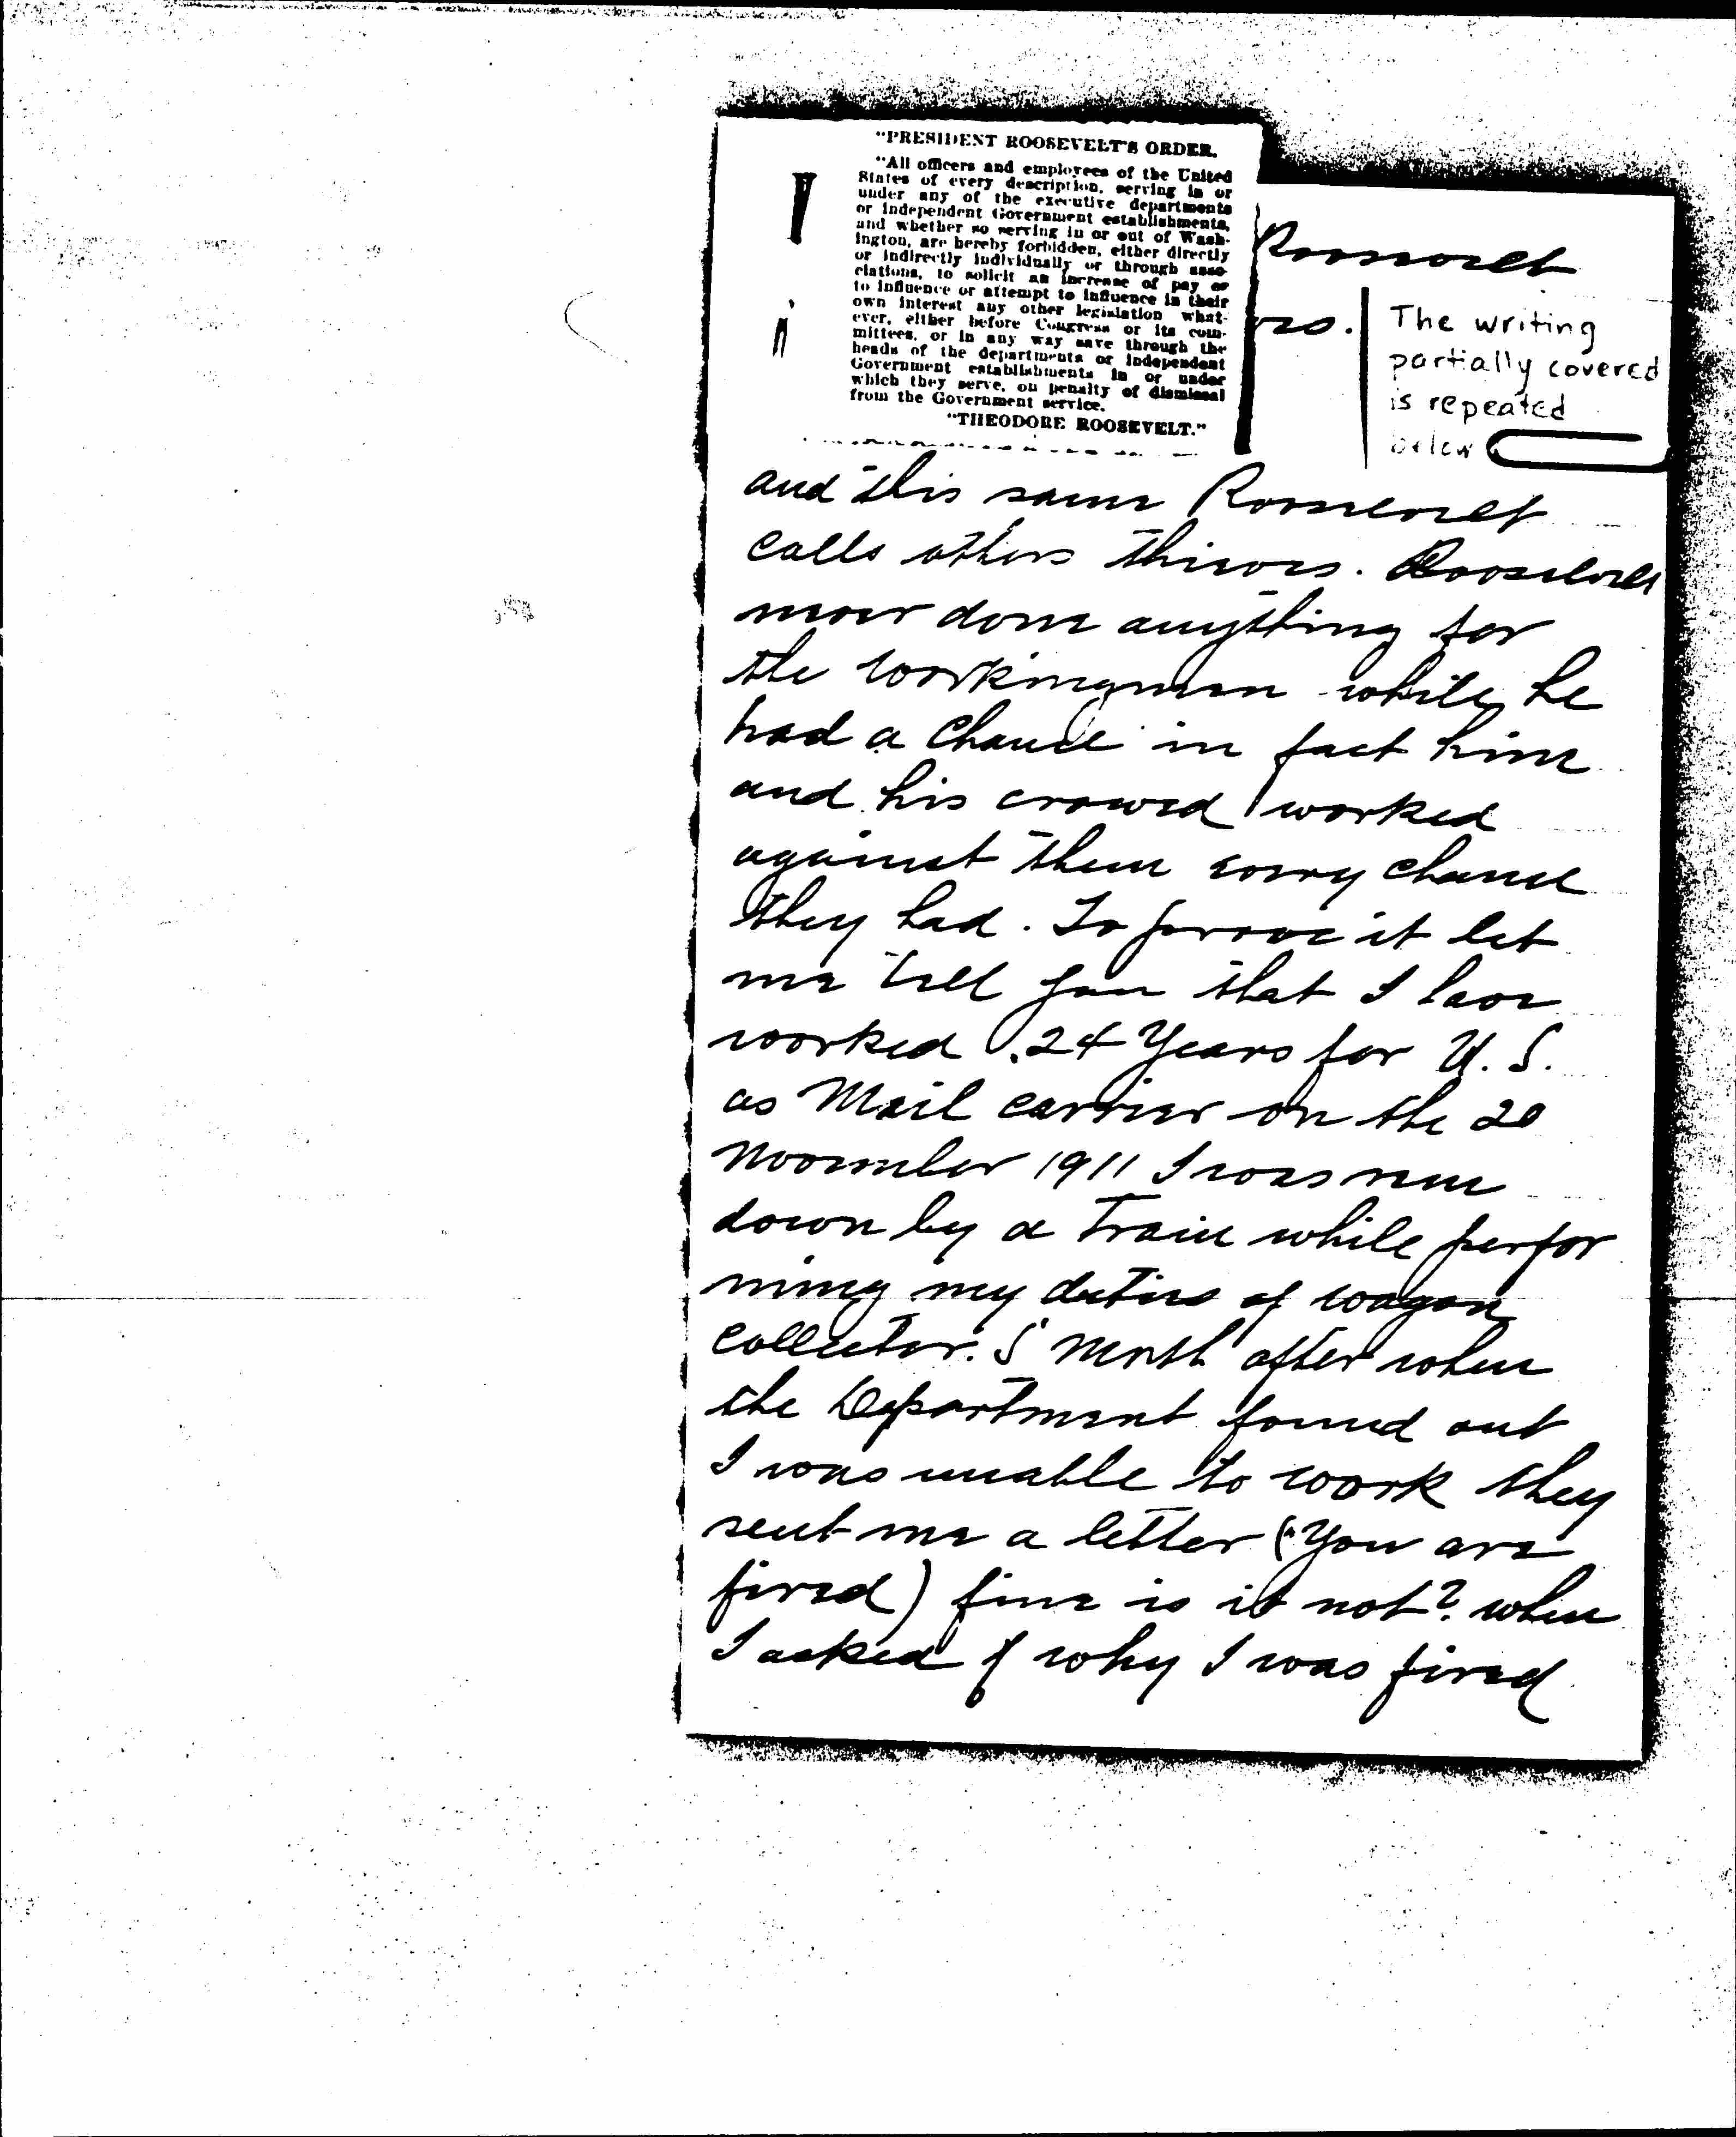 "PRESIDENT ROOSEVELT'S ORDER.
"All officers and employees of the United
States of every description, serving in or
under any of the executive departments
or independent Government establishments,
and whether so serving in or out of Wash-
ington, are hereby forbidden, either directly
or indirectly individually or through asso-
ciations, to solicit an increase of pay or
to influence or attempt to influence in their
own interest any other legislation what-
ever, either before Congress or its com-
mittees, or in any way save through the
heads of the departments or independent
Government establishments in or under
which they serve, on penalty of dismissal
from the Government service.
"THEODORE ROOSEVELT."
Roosevelt
The writing
partially covered
is repeated
below
and this same Roosevelt
calls others thieves. Roosevelt
never done anything for
the workingman while he
had a chance in fact him
and his crowed worked
against them every chance
they had. To prove it let
me tell you that I have
worked 24 Years for U. S.
as Mail carrier on the 20
November 1911 I was run
down by a Train while perfor
ming my duties of wagon
collector. 5 Month after when
the Department found out
I was unable to work they
sent me a letter ("You are
fired) fine is it not? when
I asked why I was fired